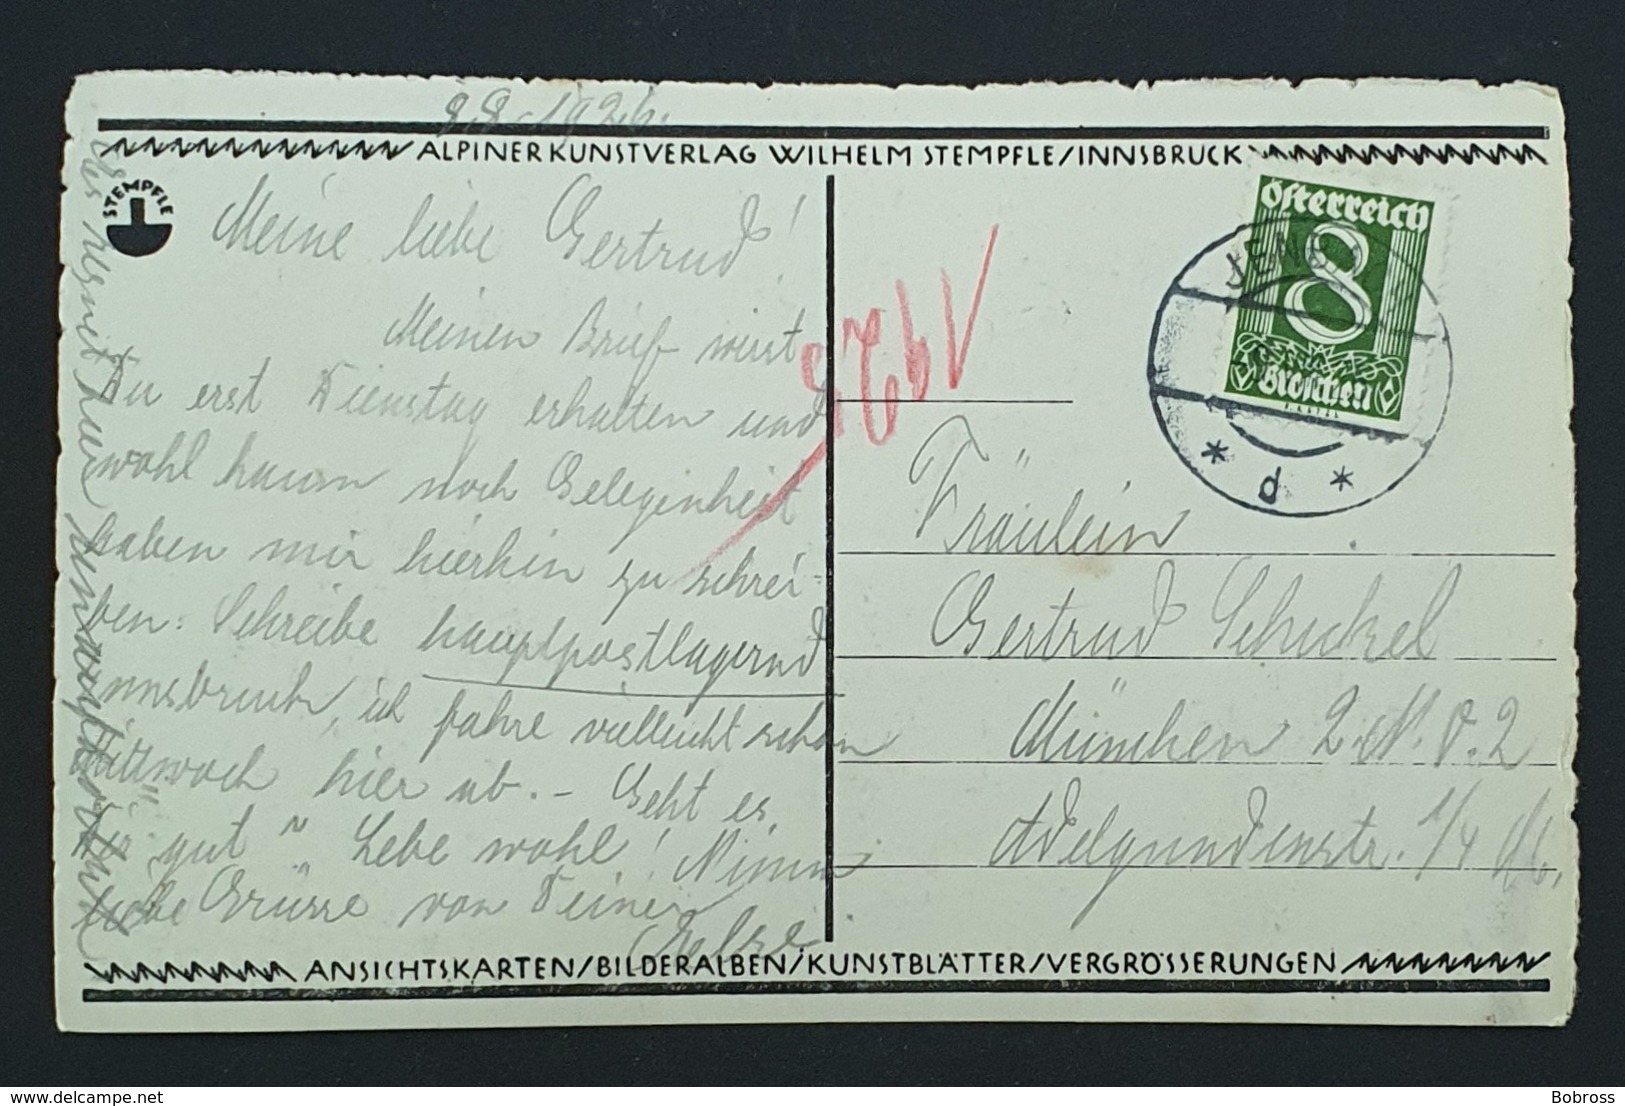 9.8.1926.
ALPINER KUNSTVERLAG WILHELM STEMPFLE/INNSBRUCK
STEMPFLE
Meine liebe Gertrud!
Meinen Brief wirst
Du erst Dienstag erhalten und
wohl kaum noch Gelegenheit
haben mir hierhin zu schrei-
ben. Schreibe hauptpostlagernd
Innsbruck, ich fahre vielleicht schon
Mittwoch hier ab. – Geht es
Dir gut? Lebe wohl! Nimm
liebe Grüsse von Deiner
Österreich
8
Groschen
JENB
* d *
Fräulein
Gertrud Schickel
München 2. N. O. 2
Adelgundenstr. 1/4
ANSICHTSKARTEN/BILDERALBEN/KUNSTBLÄTTER/VERGRÖSSERUNGEN
www.delcampe.net
Bobross